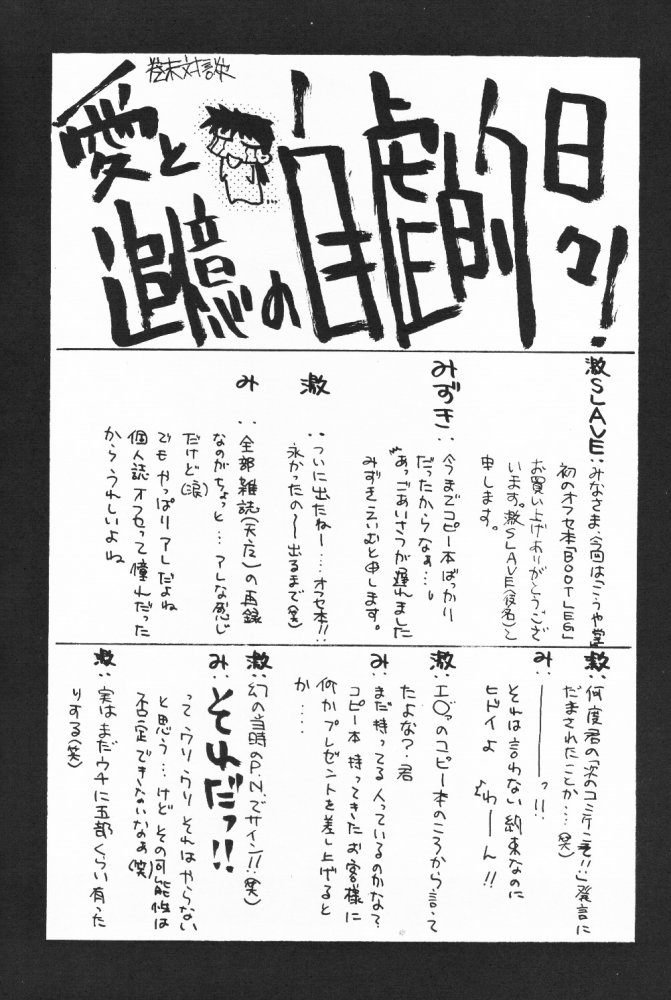 巻末対談
愛と
追憶の
自虐的
日々!
激SLAVE:みなさま、今回はこうや堂
初のオフセ本「BOOTLEG」
お買い上げありがとうござ
います。激SLAVE(仮名)と
申します。
みずき:今までコピー本ばっかり
だったからなぁ…。
あっごあいさつが遅れました
みずきえいむと申します。
激:ついに出たねー……オフセ本!!
永かったの〜出るまで(笑)
み:全部雑誌(天左)の再録
なのがちょっと…アレな感じ
だけど(涙)
でもやっぱりアレだよね
個人誌オフセって憧れだった
からうれしいよね
激:何度君の「次のコミケこそ!!」発言に
だまされたことか……(笑)
み:―――――っ!!
それは言わない約束なのに
ヒドイよ わーん!!
激:エ○っのコピー本のころから言って
たよな?君
み:まだ持ってる人っているのかな?
コピー本持ってきたお客様に
何かプレゼントを差し上げると
か‥‥
激:幻の当時のP.N.でサイン!!(笑)
み:それだっ!!
ってウソウソそれはやらない
と思う…けどその可能性は
否定できないなぁ(笑)
激:実はまだウチに五部くらい有った
りする(笑)